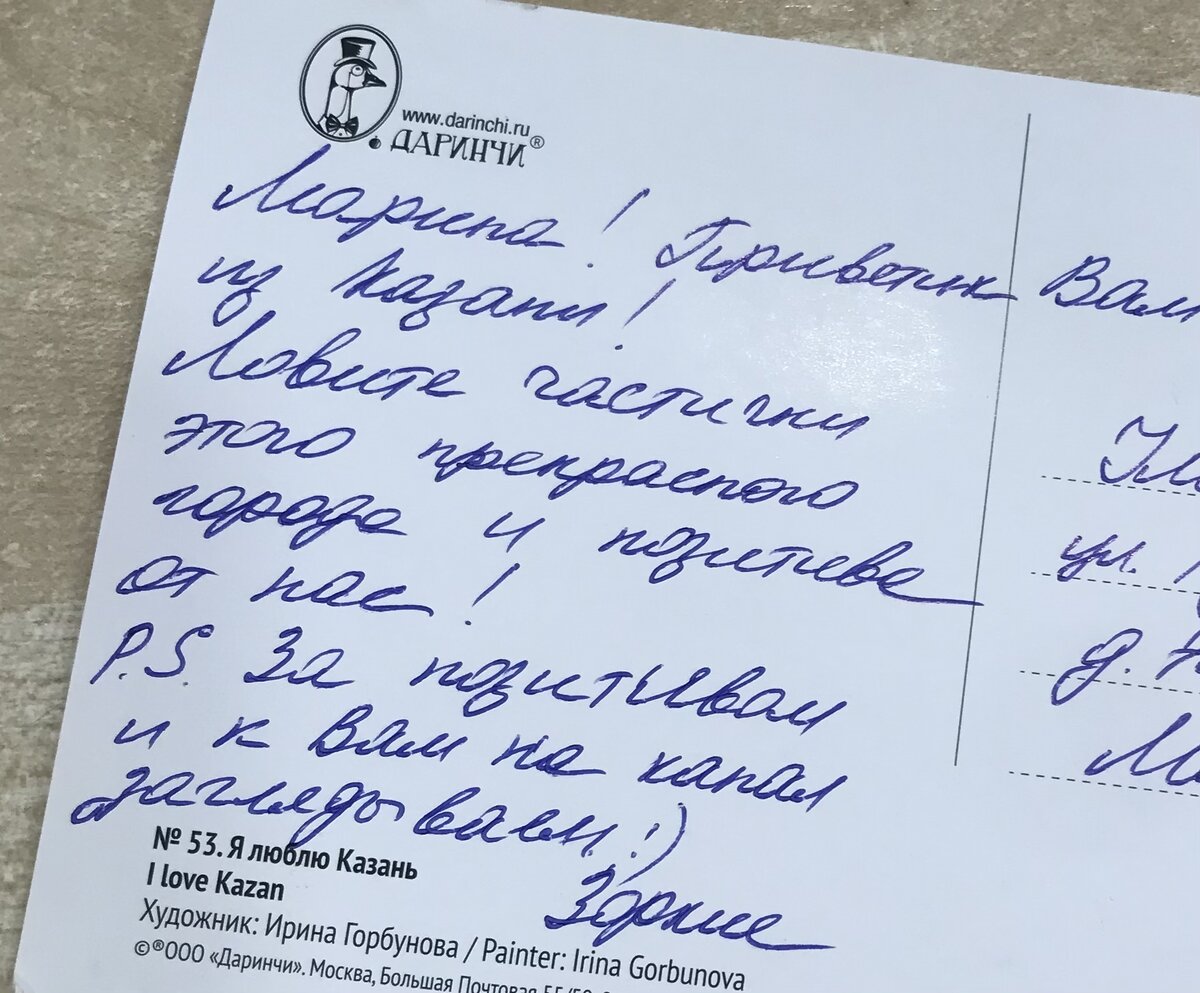 www.darinchi.ru
ДАРИНЧИ®
Марина! Приветик Вам
из Казани!
Ловите частички
этого прекрасного
города и позитива
от нас!
P.S. За позитивом
и к Вам на канал
заглядываем!:)
Зоркие
№ 53. Я люблю Казань
I love Kazan
Художник: Ирина Горбунова / Painter: Irina Gorbunova
©®ООО «Даринчи». Москва, Большая Почтовая
ул.
д.